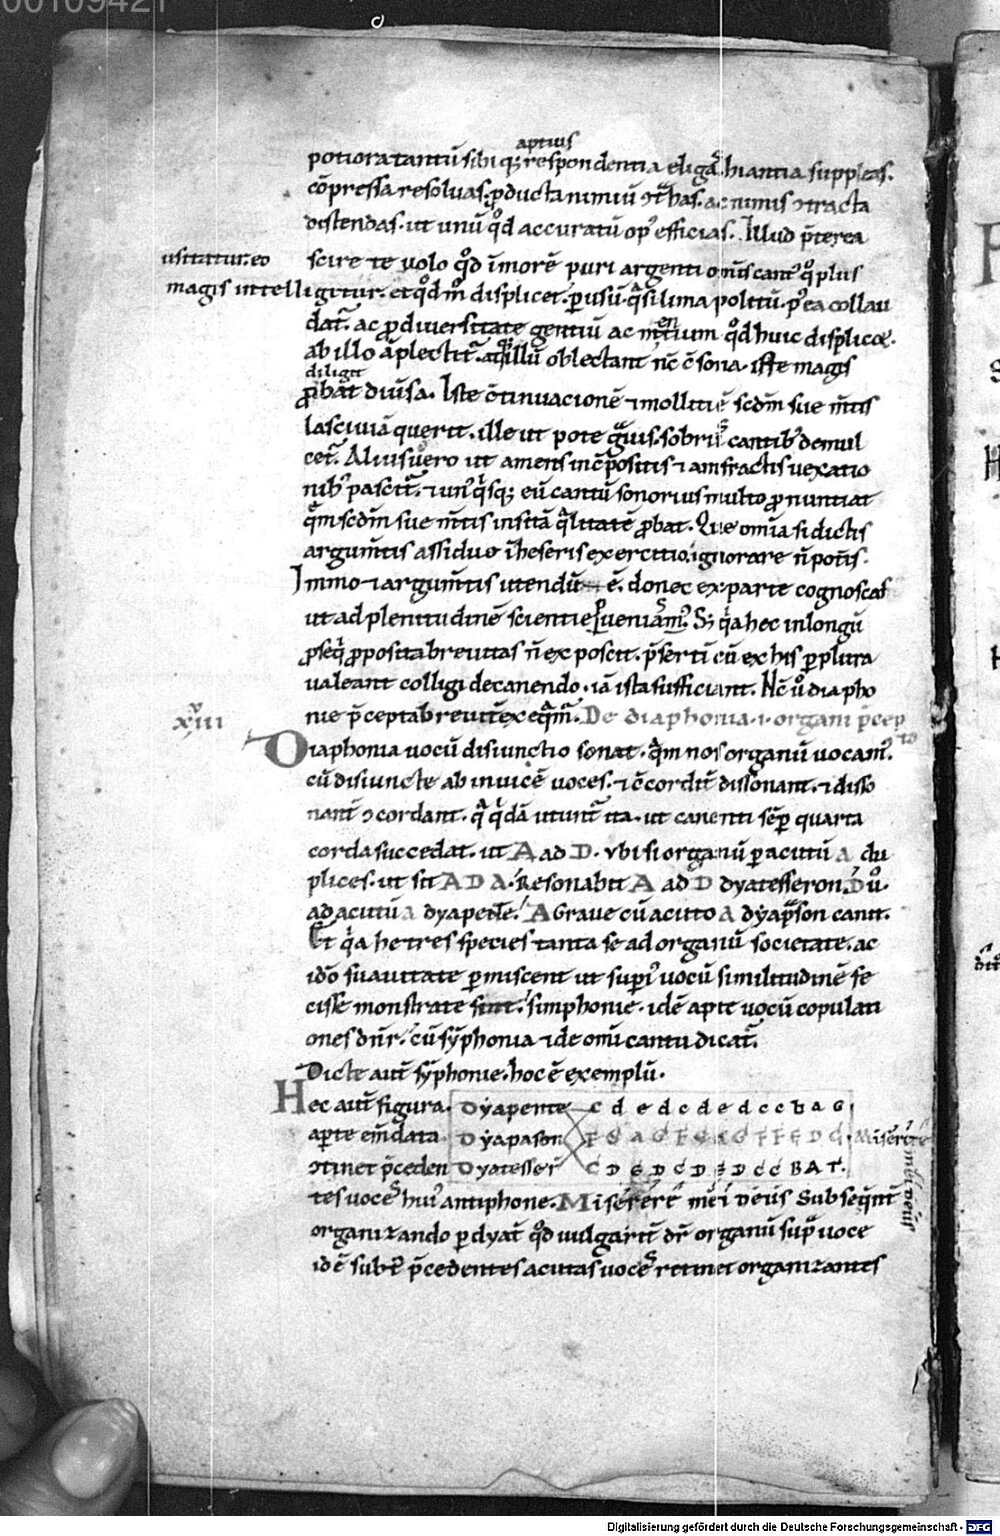 00109421
aptius
potiora tantū sibiq; respondentia eligās. hiantia suppleas.
cōpressa resoluas. ꝓducta nimiū ↄt̄has. ac nimis ↄtracta
distendas. ut unū qd̄ accuratū op' efficias. Illud p̄terea
usitatur. eo scire te uolo qd̄ īmorē puri argenti omīs cant' q̊ plus
magis intelligitur. et qd̄ m̊ displicet. ꝑ usū. q̄si lima politū. p' ea collau
dat̄. ac ꝓ diuersitate gentiū ac mentium qd̄ huic displicet.
ab illo āplectit̄. illū oblectant nc̄ c̄sona. iste magis
diligit
ꝓbat diu̅sa. Iste c̄tinuacionē ⁊ mollitiē scdm̄ sue m̄tis
lasciuiā querit. ille ut pote g̊uis. sobriis cantib' demul
cet̄. Alius uero ut amens in c̄positis ⁊ amfractis uexatio
nib' pascit̄. ⁊ un' q̊sq; eū cantū sonorius multo ꝓnuntiat
q̄m scdm̄ sue m̄tis insitā q̄litatē ꝓbat. Que om̄ia si dictis
argum̄tis assiduo īheseris exercitio. ignorare n̄ potis.
Immo ⁊ argum̄tis utendū ē. donec ex parte cognoscas
ut ad plenitudinē scientie ꝑueniam'. S; q̊a hec in longū
ꝓseq̊ ꝓposita breuitas n̄ exposcit. p̄sertī cū ex his ꝑplura
ualeant colligi de canendo. iā ista sufficiant. Nc̄ ů diapho
nie p̄cepta breuit̄ exeq̄m̄. De diaphonia .i. organi p̄cep
xiii ta
Diaphonia uocū disiunctio sonat. q̄m nos organū uocam'.
cū disiuncte ab inuicē uoces. ⁊ c̄cordit̄ dissonant. ⁊ disso
nant̄ ↄcordant. q̊ q̊dā utunt̄ ita. ut canenti sēꝑ quarta
corda succedat. ut A ad D. vbi si organū ꝑ acutū a du
plices. ut sit A D A. Resonabit A ad D dyatesseron. D ů.
ad acutū a dyapente. A Graue cū acuto a dyapason canit.
Et q̊a he tres species tanta se ad organū societate. ac
idō suauitate ꝑmiscent ut supi' uocū similitudinē fe
cisse monstrate sint. simphonie. idē apte uocū copulati
ones dn̄r. cū sȳphonia ⁊ de omī cantu dicat̄.
Dicte aut̄ sȳphonie. hoc ē exemplū.
Hec aut̄ figura. Dyapente c d e d c d e d c c b a G
aperte em̄data Dyapason F G a G F G a G F F E D C Miserere
ↄtinet p̄ceden Dyatesser̄ C D E D C D E D C C B A Γ. mei deus
tes uoces hui' antiphone. Miserere mei deus Subseq̄nt̄
organizando ꝑ dyat̄ qd̄ uulgarit̄ dr̄ organū sup̊ uoce
idē subt' p̄cedentes acutas uoces retinet organizantes
Digitalisierung gefördert durch die Deutsche Forschungsgemeinschaft - DFG